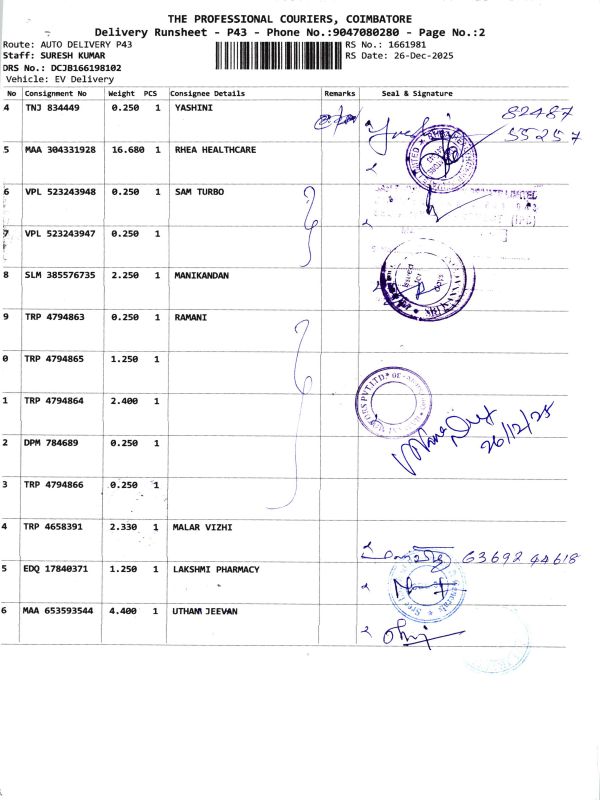 THE PROFESSIONAL COURIERS, COIMBATORE
Delivery Runsheet - P43 - Phone No.:9047080280 - Page No.:2
Route: AUTO DELIVERY P43
RS No.: 1661981
Staff: SURESH KUMAR
RS Date: 26-Dec-2025
DRS No.: DCJB166198102
Vehicle: EV Delivery
No Consignment No Weight PCS Consignee Details Remarks Seal & Signature
4 TNJ 834449 0.250 1 YASHINI 82487
55257
5 MAA 304331928 16.680 1 RHEA HEALTHCARE
6 VPL 523243948 0.250 1 SAM TURBO
7 VPL 523243947 0.250 1
8 SLM 385576735 2.250 1 MANIKANDAN
9 TRP 4794863 0.250 1 RAMANI
0 TRP 4794865 1.250 1
1 TRP 4794864 2.400 1
26/12/25
2 DPM 784689 0.250 1
3 TRP 4794866 0.250 1
4 TRP 4658391 2.330 1 MALAR VIZHI
63692 44618
5 EDQ 17840371 1.250 1 LAKSHMI PHARMACY
6 MAA 653593544 4.400 1 UTHAM JEEVAN